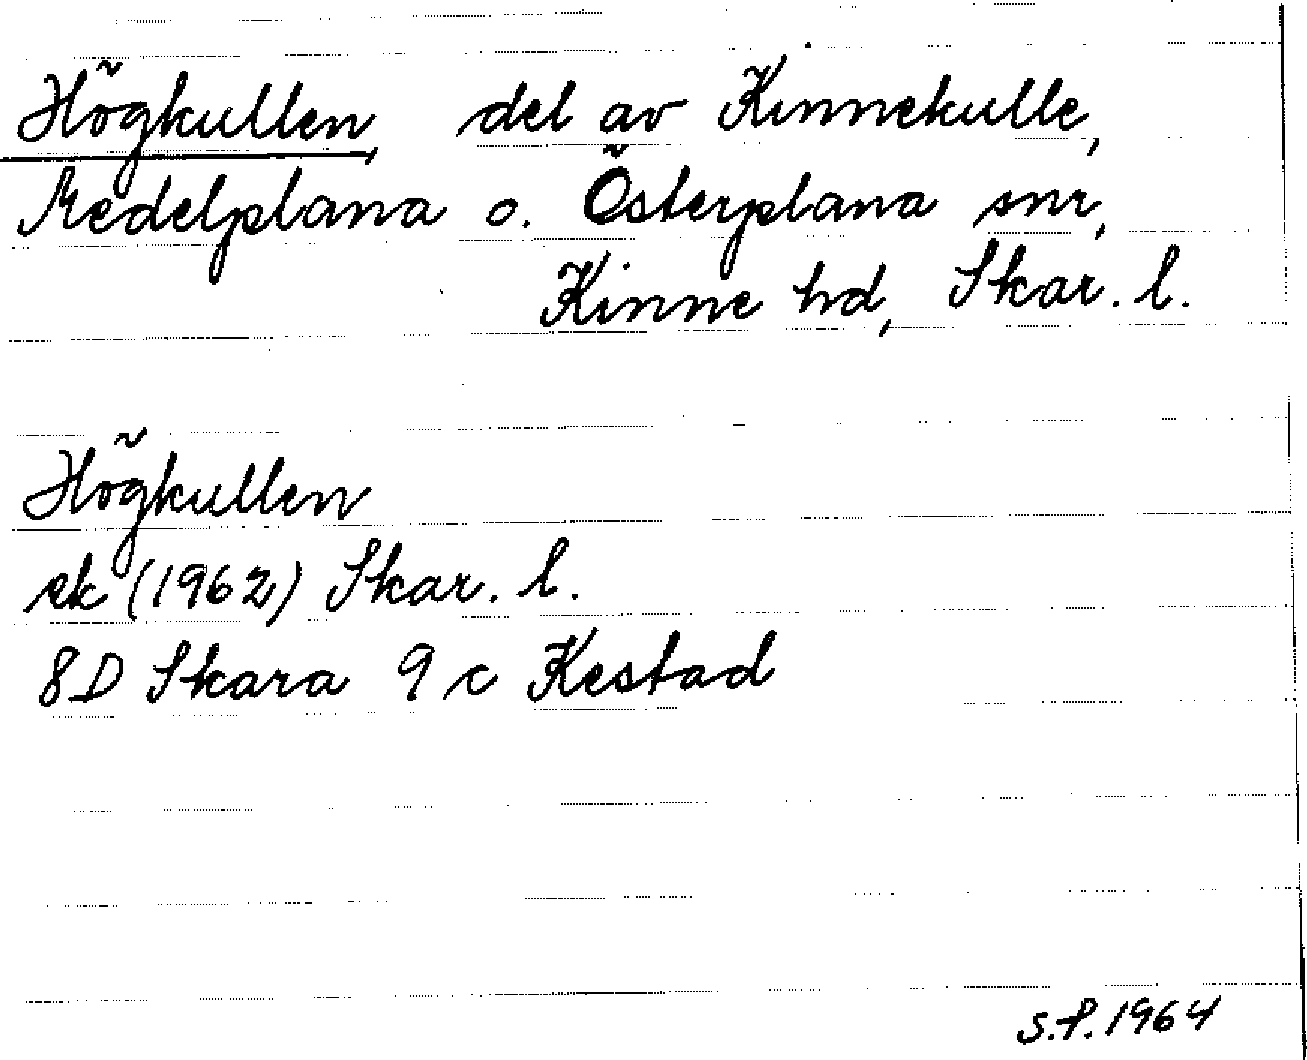 Högkullen, del av Kinnekulle,
Medelplana o. Österplana snr,
Kinne hd, Skar. l.
Högkullen
ek (1962) Skar. l.
8D Skara 9 c Kestad
S.P. 1964